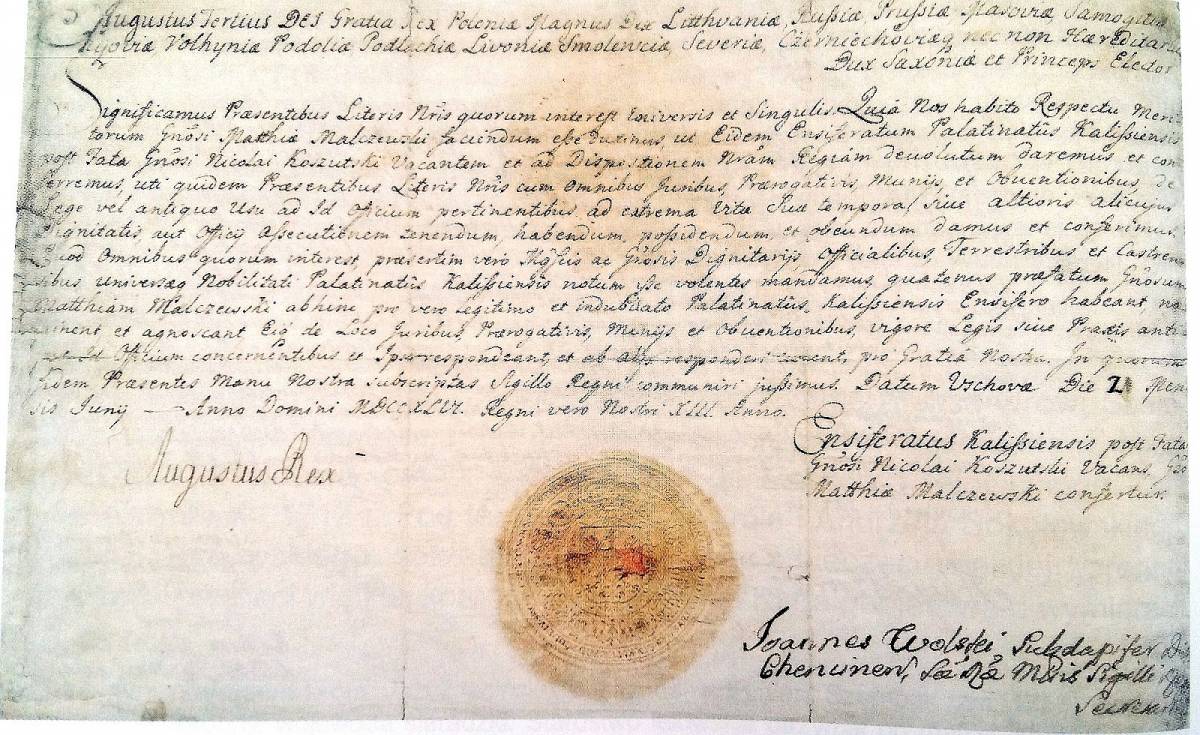 Augustus Tertius DEI Gratia Rex Poloniæ Magnus Dux Litthvaniæ, Russiæ, Prussiæ Masoviæ Samogitiæ
Kyoviæ Volhyniæ Podoliæ Podlachiæ Livoniæ Smolenciæ, Severiæ, Czerniechoviæq nec non Hæreditarius
Dux Saxoniæ et Princeps Elector
Significamus Præsentibus Literis Nris quorum interest Universis et Singulis Quia Nos habito Respectu Meri-
torum Gnosi Matthiæ Malczewski faciendum esse duximus, ut Eidem Ensiferatum Palatinatûs Kalissiensis
post Fata Gnosi Nicolai Koszutski Vacantem et ad Dispositionem Nram Regiam devolutum daremus, et con-
ferremus, uti quidem Præsentibus Literis Nris cum Omnibus Juribus, Prærogativis, Munijs, et Obventionibus, de
Lege vel antiquo Usu ad Id Officium pertinentibus, ad extrema Vitæ Suæ tempora sive altioris alicujus
Dignitatis aut Officij Assecutionem tenendum, habendum, possidendum, et obeundum damus et conferimus.
Quod Omnibus quorum interest præsertim vero Mgficis ac Gnosis Dignitarijs, Officialibus, Terrestribus et Castren-
sibus universæq Nobilitati Palatinatûs Kalissiensis notum esse volentes mandamus, quatenus præfatum Gnosum
Matthiam Malczewski abhinc pro vero legitimo et indubitato Palatinatûs, Kalissiensis Ensifero habeant, no-
minent et agnoscant Eiq de Loco Juribus, Prærogativis, Munijs et Obventionibus, vigore Legis sive Praxis anti
ad Id Officium concernentibus et respondeant, et ab responderi curent, pro Gratiâ Nostra. In quorum
Fidem Præsentes Manu Nostra subscriptas Sigillo Regni communiri jussimus. Datum Vschovæ Die Men-
sis Junij Anno Domini MDCCXLVI. Regni vero Nostri XIII Anno.
Augustus Rex
Ensiferatus Kalissiensis post Fata
Gnosi Nicolai Koszutski Vacans, Gno
Matthiæ Malczewski confertur.
Joannes Wolski Subdapifer
Chencinen, Sæ Ræ Mtis Sigilli